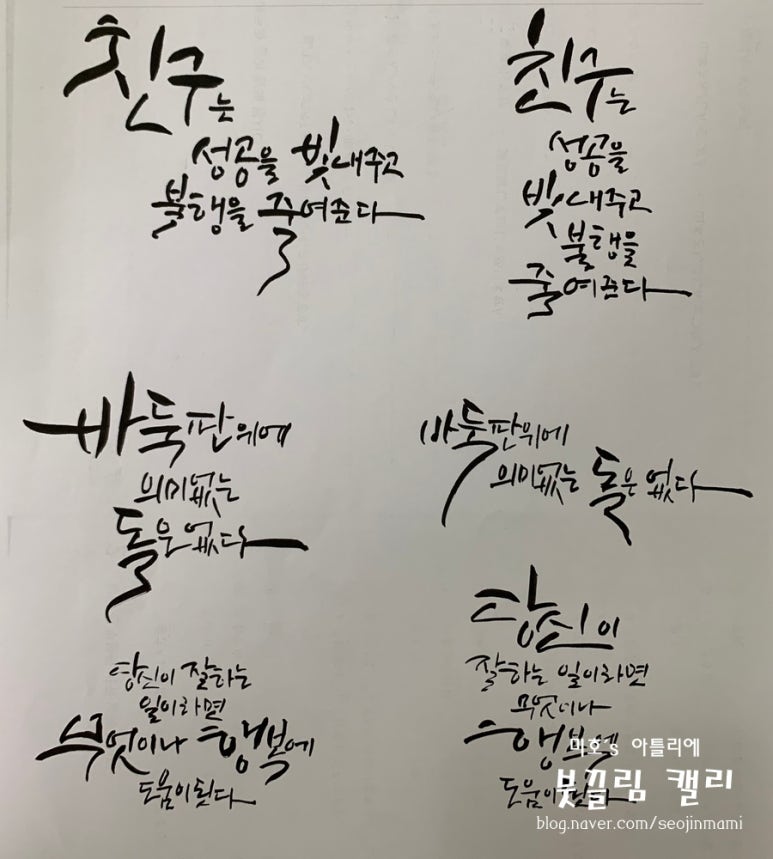 친구는
성공을 빛내주고
불행을 줄여준다
친구는
성공을
빛내주고
불행을
줄여준다
바둑판위에
의미없는
돌은없다
바둑판위에
의미없는 돌은 없다
당신이 잘하는
일이라면
무엇이나 행복에
도움이된다
당신이
잘하는 일이라면
무엇이나
행복에
도움이된다
미호's 아틀리에
붓끌림 캘리
blog.naver.com/seojinmami